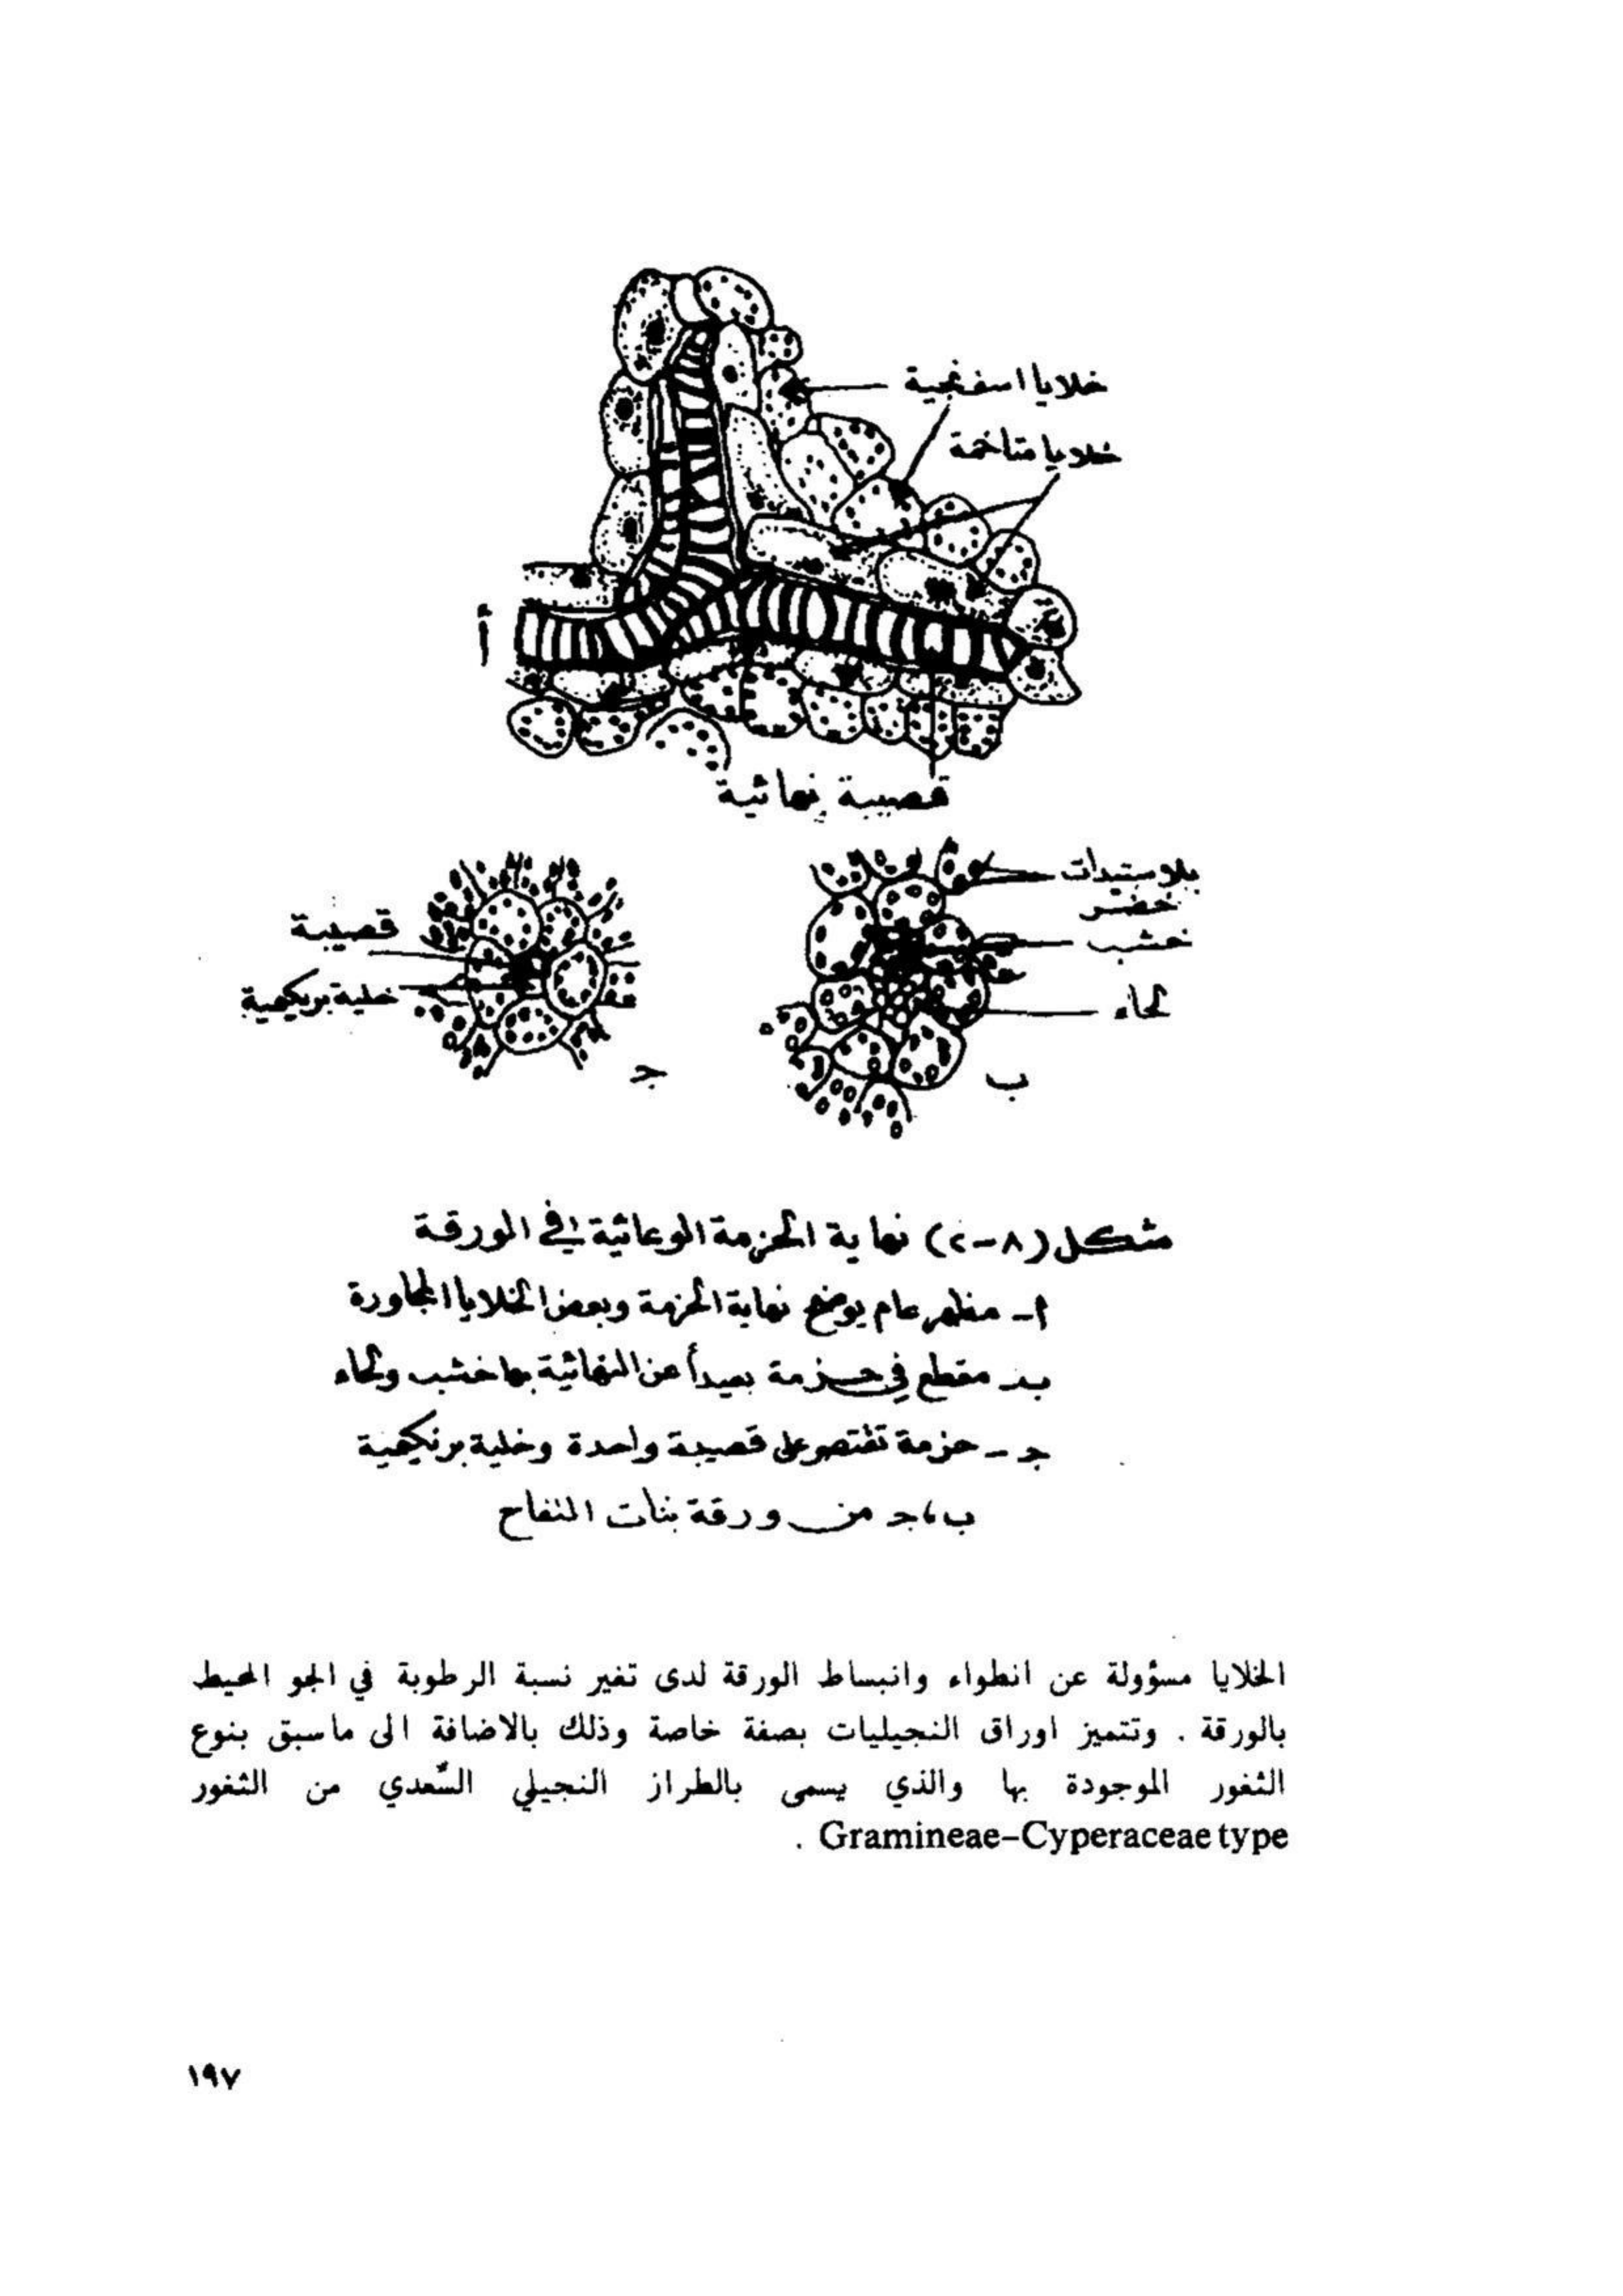 خلايا اسفنجية
خلايا متاخمة
أ
قصيبة نهائية
بلاستيدات
خضر
خشب
لحاء
ب
قصيبة
خلية برنكيمية
جـ
شكل (٨-٢) نهاية الحزمة الوعائية في الورقة
أ- مظهر عام يوضح نهاية الحزمة وبعض الخلايا المجاورة
ب- مقطع في حزمة بعيداً عن النهائية بها خشب ولحاء
جـ - حزمة تقتصر على قصيبة واحدة وخلية برنكيمية
ب، جـ من ورقة نبات التفاح
الخلايا مسؤولة عن انطواء وانبساط الورقة لدى تغير نسبة الرطوبة في الجو المحيط
بالورقة . وتتميز اوراق النجيليات بصفة خاصة وذلك بالاضافة الى ماسبق بنوع
الثغور الموجودة بها والذي يسمى بالطراز النجيلي السّعدي من الثغور
Gramineae-Cyperaceae type .
١٩٧